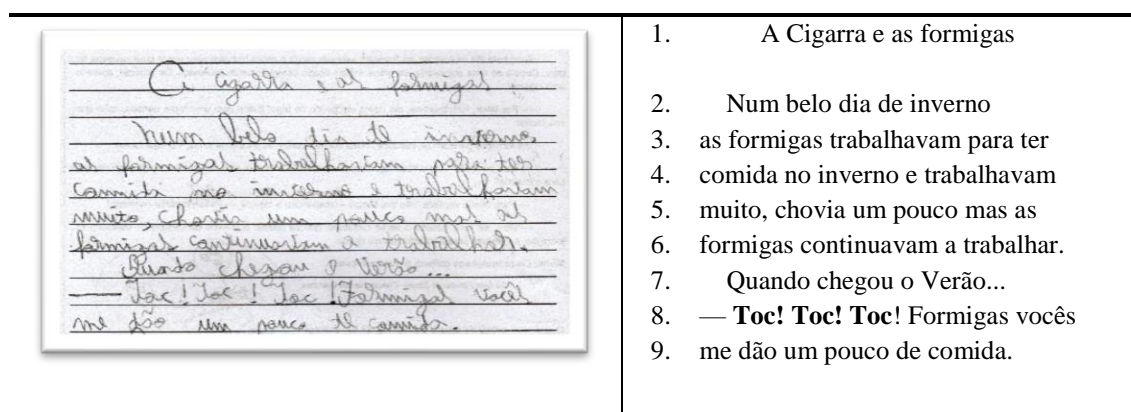 A cigarra e as formigas.
Num belo dia de inverno
as formigas trabalhavam para ter
comida no inverno e trabalhavam
muito, chovia um pouco mas as
formigas continuavam a trabalhar.
Quando chegou o Verão...
— Toc! Toc! Toc! Formigas vocês
me dão um pouco de comida.
1. A Cigarra e as formigas
2. Num belo dia de inverno
3. as formigas trabalhavam para ter
4. comida no inverno e trabalhavam
5. muito, chovia um pouco mas as
6. formigas continuavam a trabalhar.
7. Quando chegou o Verão...
8. — Toc! Toc! Toc! Formigas vocês
9. me dão um pouco de comida.